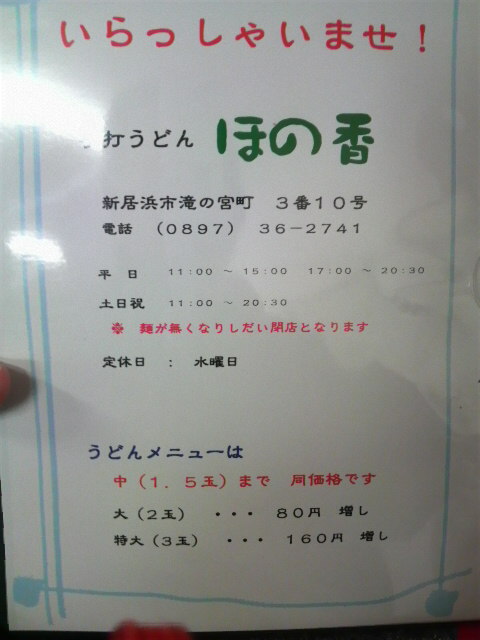 いらっしゃいませ！
打うどん ほの香
新居浜市滝の宮町 ３番１０号
電話 （０８９７） ３６－２７４１
平 日 11:00 ～ 15:00 17:00 ～ 20:30
土日祝 11:00 ～ 20:30
※ 麺が無くなりしだい閉店となります
定休日 ： 水曜日
うどんメニューは
中（１．５玉）まで 同価格です
大（２玉） ・・・ ８０円 増し
特大（３玉） ・・・ １６０円 増し